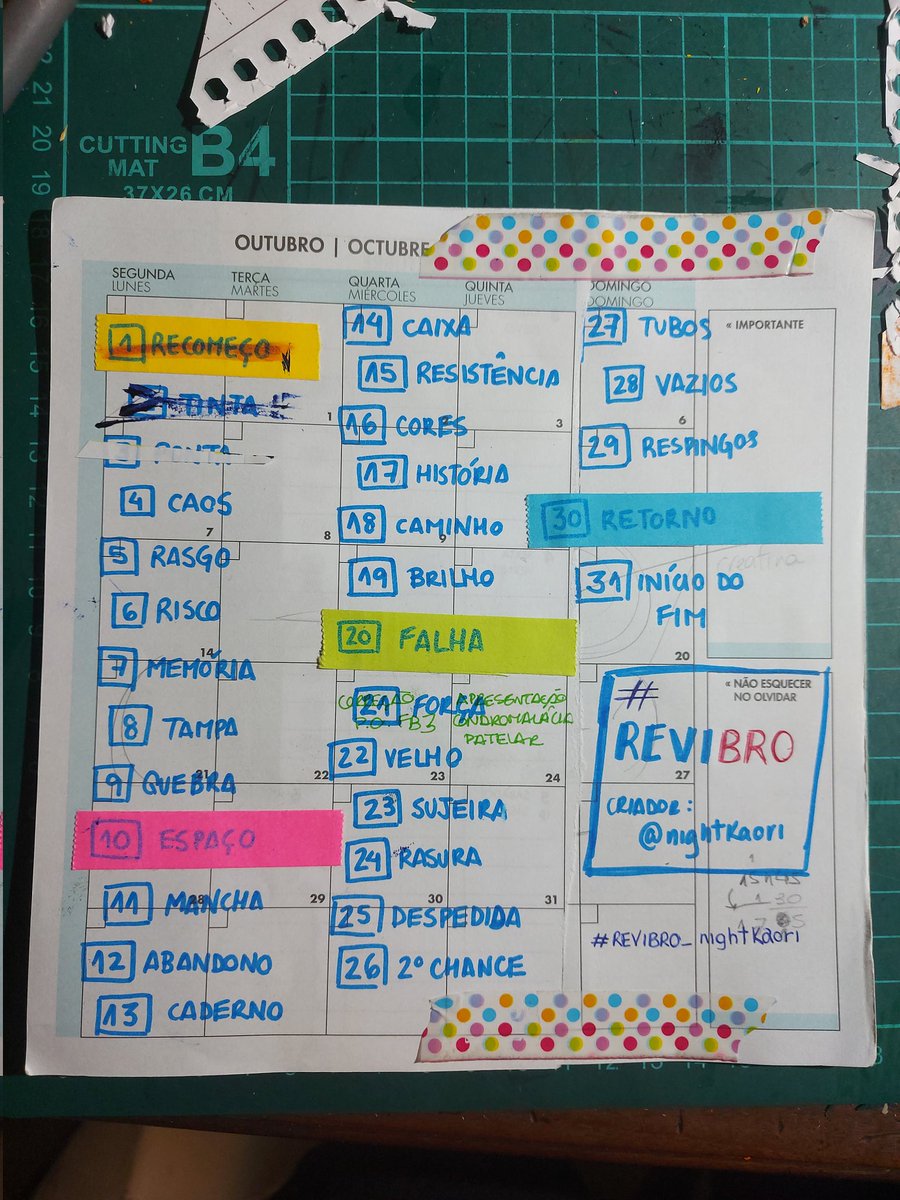 CUTTING
MAT
B4
37X26 CM
OUTUBRO | OCTUBRE
SEGUNDA
LUNES
TERÇA
MARTES
QUARTA
MIÉRCOLES
QUINTA
JUEVES
DOMINGO
DOMINGO
1 RECOMEÇO
2 TINTA
3 PONTA
4 CAOS
5 RASGO
6 RISCO
7 MEMÓRIA
8 TAMPA
9 QUEBRA
10 ESPAÇO
11 MANCHA
12 ABANDONO
13 CADERNO
14 CAIXA
15 RESISTÊNCIA
16 CORES
17 HISTÓRIA
18 CAMINHO
19 BRILHO
20 FALHA
21 FORÇA
APRESENTAÇÃO
CONDROMALÁCIA
PATELAR
22 VELHO
23 SUJEIRA
24 RASURA
25 DESPEDIDA
26 2º CHANCE
27 TUBOS
28 VAZIOS
29 RESPINGOS
30 RETORNO
31 INÍCIO DO
FIM
« IMPORTANTE
criativa
« NÃO ESQUECER
NO OLVIDAR
#
REVIBRO
CRIADOR:
@nightKaori
#REVIBRO_nightKaori
1
3
6
7
8
9
14
20
21
22
23
24
27
28
29
30
31